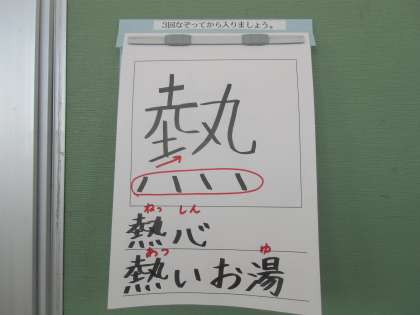 3回なぞってから入りましょう。
熱
ねっ しん
熱心
あつ ゆ
熱いお湯